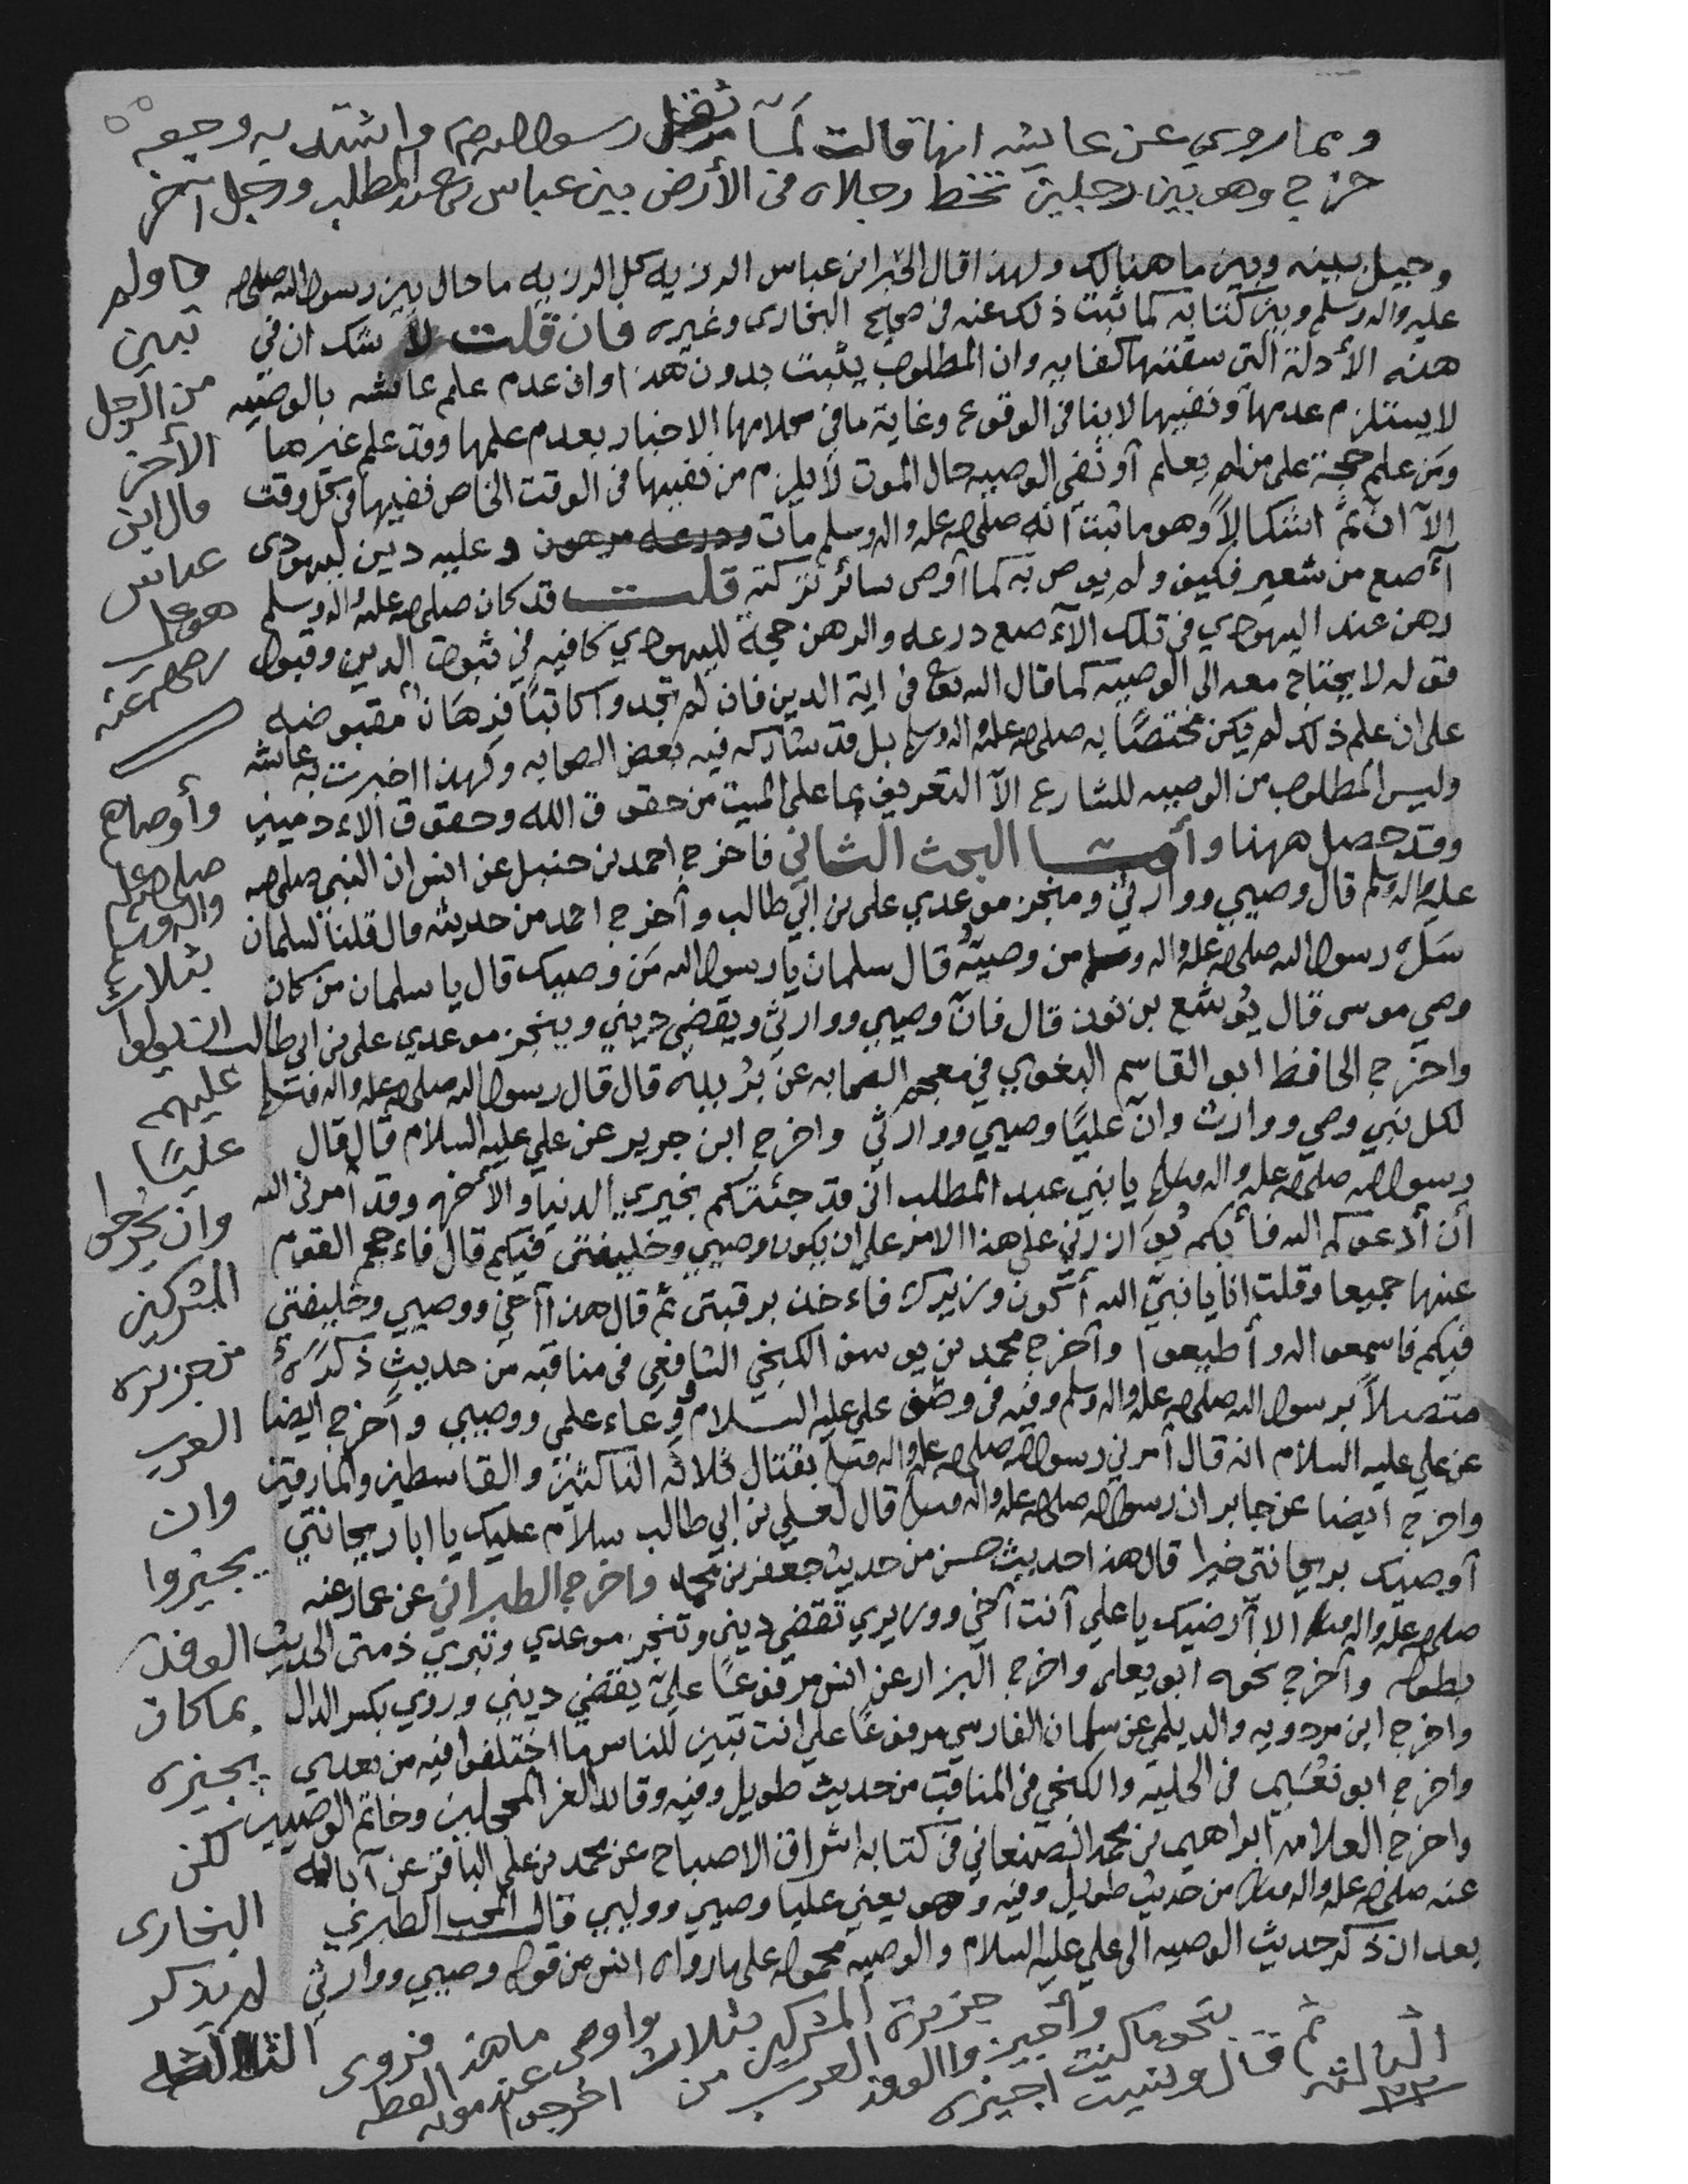 ومما روي عن عايشه انها قالت لمآ ثقل رسول الله ص واشتد به وجعه
خرج وهو بين رجلين تخط رجلاه في الأرض بين عباس بن عبد المطلب ورجل آخر
وحيل بينه وبين ما هنالك ولهذا قال الحبر ابن عباس الرزيه كل الرزيه ما حال بين رسول الله صلى الله
عليه واله وسلم وبين كتابه كما ثبت ذلك عنه في صحيح البخارى وغيره فان قلت لا شك ان في
هذه الأدلة التي سقتها كفايه وان المطلوب يثبت بدون هذا وان عدم علم عائشه بالوصيه
لا يستلزم عدمها ونفيها لا ينافي الوقوع وغاية ما في كلامها الاخبار بعدم علمها وقد علم غيرها
ومن علم حجة على من لم يعلم أو نفي الوصيه حال الموت لا يلزم من نفيها في الوقت الخاص نفيها في كل وقت
الآ ان ثم اشكالاً وهو ما ثبت أنه صلى الله عليه واله وسلم مات وعليه دين ليهودى
آصع من شعير فكيف ولم يوص به كما أوصى سائر تركته قلت قد كان صلى الله عليه واله وسلم
رهن عند اليهودي في تلك الآصع درعه والرهن حجة لليهودي كافيه في ثبوت الدين وقبول
قوله لا يحتاج معه الى الوصيه كما قال الله تعالى في اية الدين فان لم تجدوا كاتبًا فرهان مقبوضه
على ان علم ذلك لم يكن مختصًا به صلى الله عليه واله وسلم بل قد شاركه فيه بعض الصحابه ولهذا اخبرت به عايشه
وليس المطلوب من الوصيه للشارع الآ التعريف بما على الميت من حقوق الله وحقوق الآدميين
وقد حصل ههنا وأمـــا البحث الثاني فاخرج احمد بن حنبل عن انس ان النبي صلى الله
عليه واله وسلم قال وصيي ووارثي ومنجز موعدي علي بن ابي طالب وأخرج احمد من حديثه قال قلنا لسلمان
سل رسول الله صلى الله عليه واله وسلم من وصيه قال سلمان يا رسول الله من وصيك قال يا سلمان من كان
وصي موسى قال يوشع بن نون قال فان وصيي ووارثي ويقضي ديني وينجز موعدي علي بن ابي طالب
واخرج الحافظ ابو القاسم البغوي في معجم الصحابه عن بريده قال قال رسول الله صلى الله عليه واله وسلم
لكل نبي وصي ووارث وان عليًا وصيي ووارثي واخرج ابن جرير عن علي عليه السلام قال قال
رسول الله صلى الله عليه واله وسلم يا بني عبد المطلب اني قد جئتكم بخيري الدنيا والآخره وقد أمرني الله
أن أدعوكم اليه فأيكم يوازرني على هذا الامر على ان يكون وصيي وخليفتي فيكم قال فاءحجم القوم
عنها جميعا وقلت انا يا نبي الله أكون وزيرك فاءخذ برقبتي ثم قال هذا أخي ووصيي وخليفتي
فيكم فاسمعوا له وأطيعوا وأخرج محمد بن يوسف الكنجي الشافعي في مناقبه من حديث ذكره
متصلاً برسول الله صلى الله عليه واله وسلم وفيه في وصف علي عليه السلام ووعاء علمي ووصيي وأخرج ايضا
عن علي عليه السلام انه قال أمرني رسول الله صلى الله عليه واله وسلم بقتال ثلاثه الناكثين والقاسطين والمارقين
واخرج ايضا عن جابر ان رسول الله صلى الله عليه واله وسلم قال لعلي بن ابي طالب سلام عليك يا ابا ريحانتي
أوصيك بريحانتي خيرا قال هذا حديث حسن من حديث جعفر بن محمد واخرج الطبراني عن عمار عنه
صلى الله عليه واله وسلم الا أرضيك يا علي أنت أخي ووزيري تقضي ديني وتنجز موعدي وتبري ذمتى الحديث
بطوله وأخرج نحوه ابو يعلى واخرج البزار عن انس مرفوعًا علي يقضي ديني وروي بكسر الدال
واخرج ابن مردويه والديلمي عن سلمان الفارسي مرفوعًا علي انت تبين للناس ما اختلفوا فيه من بعدي
واخرج ابو نعيم في الحليه والكنجي في المناقب من حديث طويل وفيه وقائد الغر المحجلين وخاتم الوصيين
واخرج العلامه ابراهيم بن محمد الصنعاني في كتابه اشراق الاصباح عن محمد بن علي الباقر عن آبائه
عنه صلى الله عليه واله وسلم من حديث طويل وفيه وهو يعني عليا وصيي ووليي قال المحب الطبري
بعد ان ذكر حديث الوصيه الى علي عليه السلام والوصيه محموله على ما رواه انس من قوله وصيي ووارثي
ولم
تبين
من الرجل
الأخر
قال ابن
عباس
هو علي
رضي الله عنه
وأوصاهم
صلى الله عليه
واله وسلم
بثلاث
ان يولوا
عليهم
عليًا
وان يخرجوا
المشركين
من جزيره
العرب
وان
يجيزوا
الوفد
بما كان
يجيزه
لكن
البخارى
لم يذكر
الثالثه
فروى ما هذا لفظه
واوصى عند موته
بثلاث اخرجوا
المشركين من
جزيرة العرب
وأجيزوا الوفد
بنحو ما كنت اجيزه
ثم قال ونسيت
الثالثه